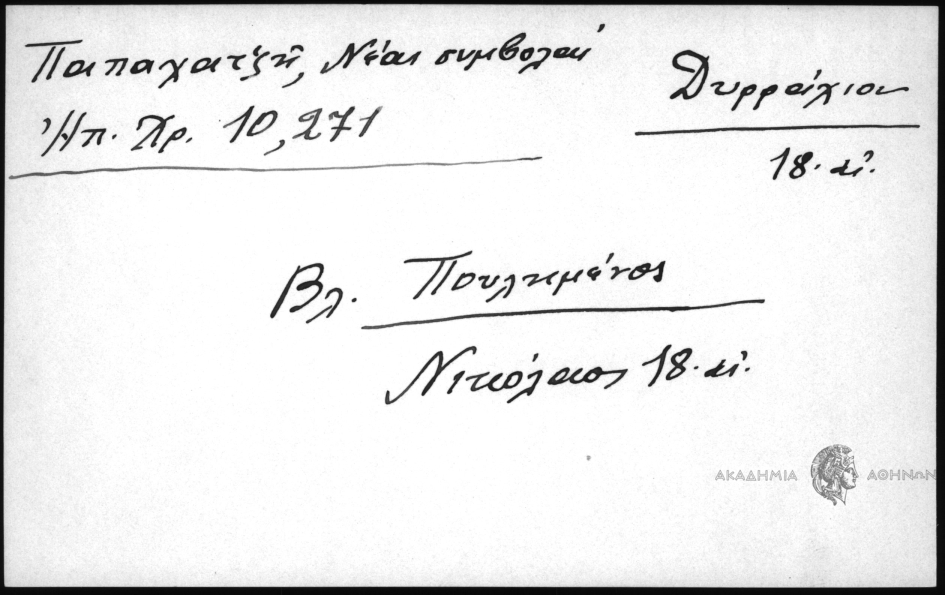 Παπαχατζῆ, Νέαι συμβολαί
Ἠπ. Χρ. 10,271
Δυρράχιον
18. αἰ.
Βλ. Πουλημένος
Νικόλαος 18. αἰ.
ΑΚΑΔΗΜΙΑ ΑΘΗΝΩΝ